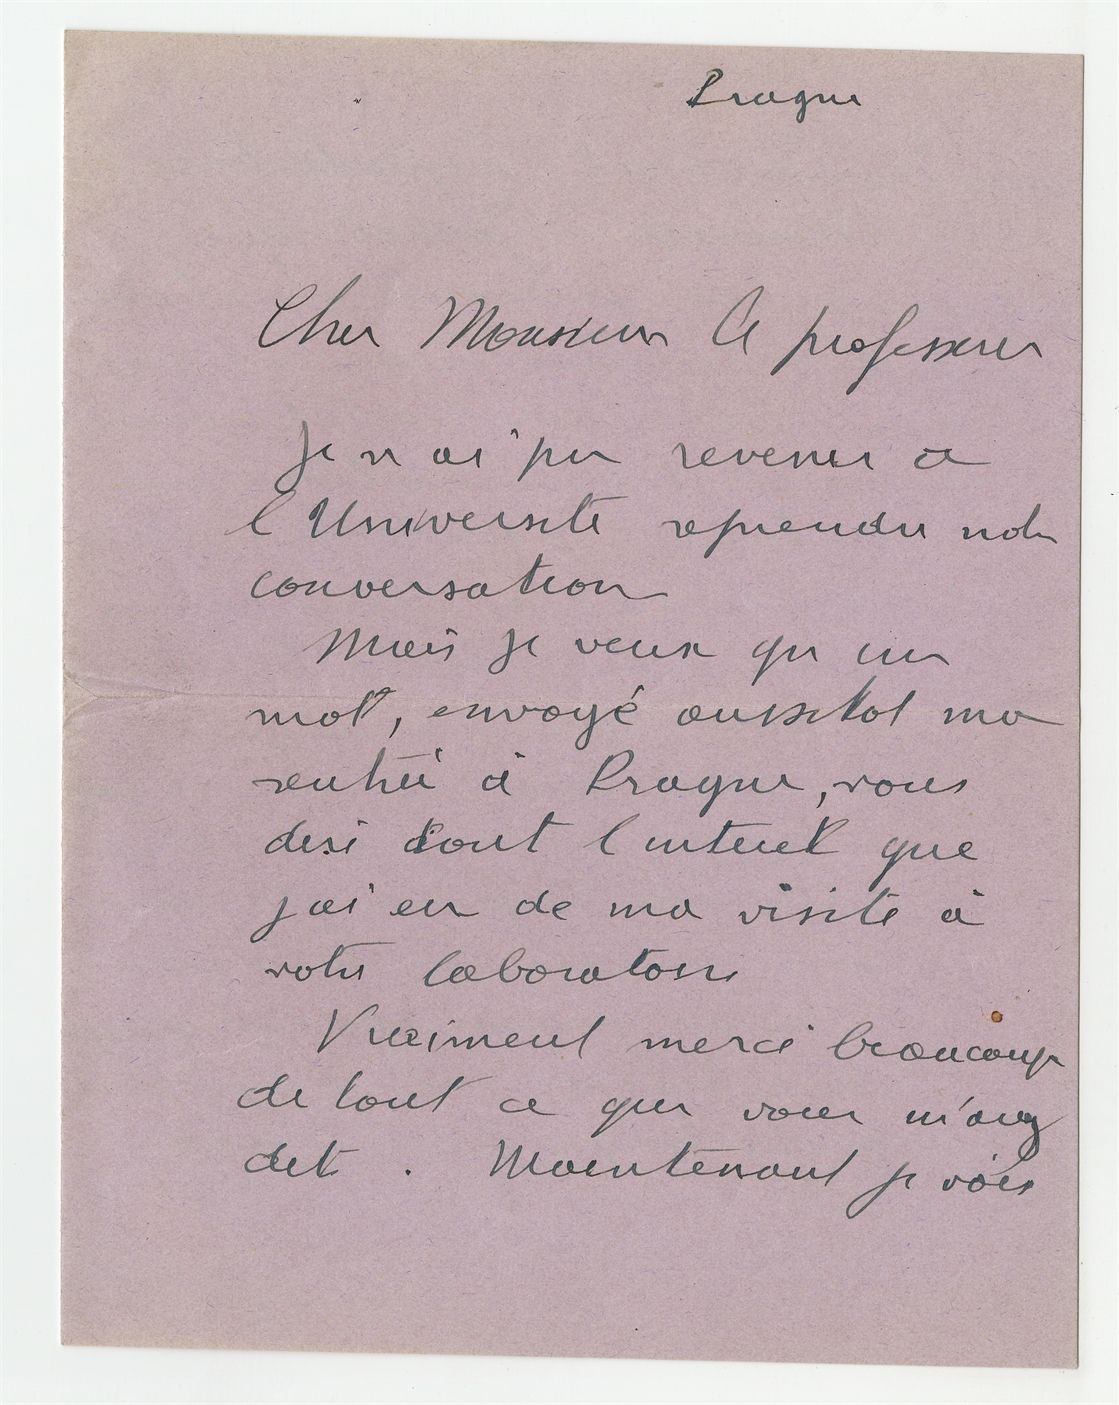 Prague
Cher Monsieur le professeur
Je n ai pu revenir a
l Université reprendre notre
conversation
Mais je veux qu un
mot, envoyé aussitot ma
rentrée à Prague, vous
dise tout l interet que
j ai eu de ma visite à
votre laboratoire
Vraiment merci beaucoup
de tout ce que vous m'avez
dit . Maintenant je vois